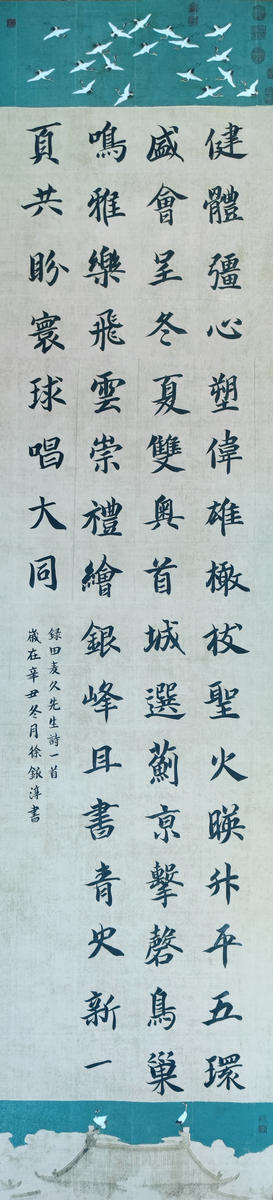 健體彊心塑偉雄橄枝聖火暎升平五環
盛會呈冬夏雙奥首城選薊京擊磬鳥巢
鳴雅樂飛雲崇禮繪銀峰且書青史新一
頁共盼寰球唱大同
録田麦久先生詩一首
歲在辛丑冬月徐銀淳書